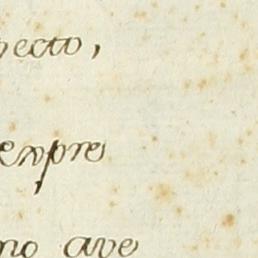 recto,
expre
no ave